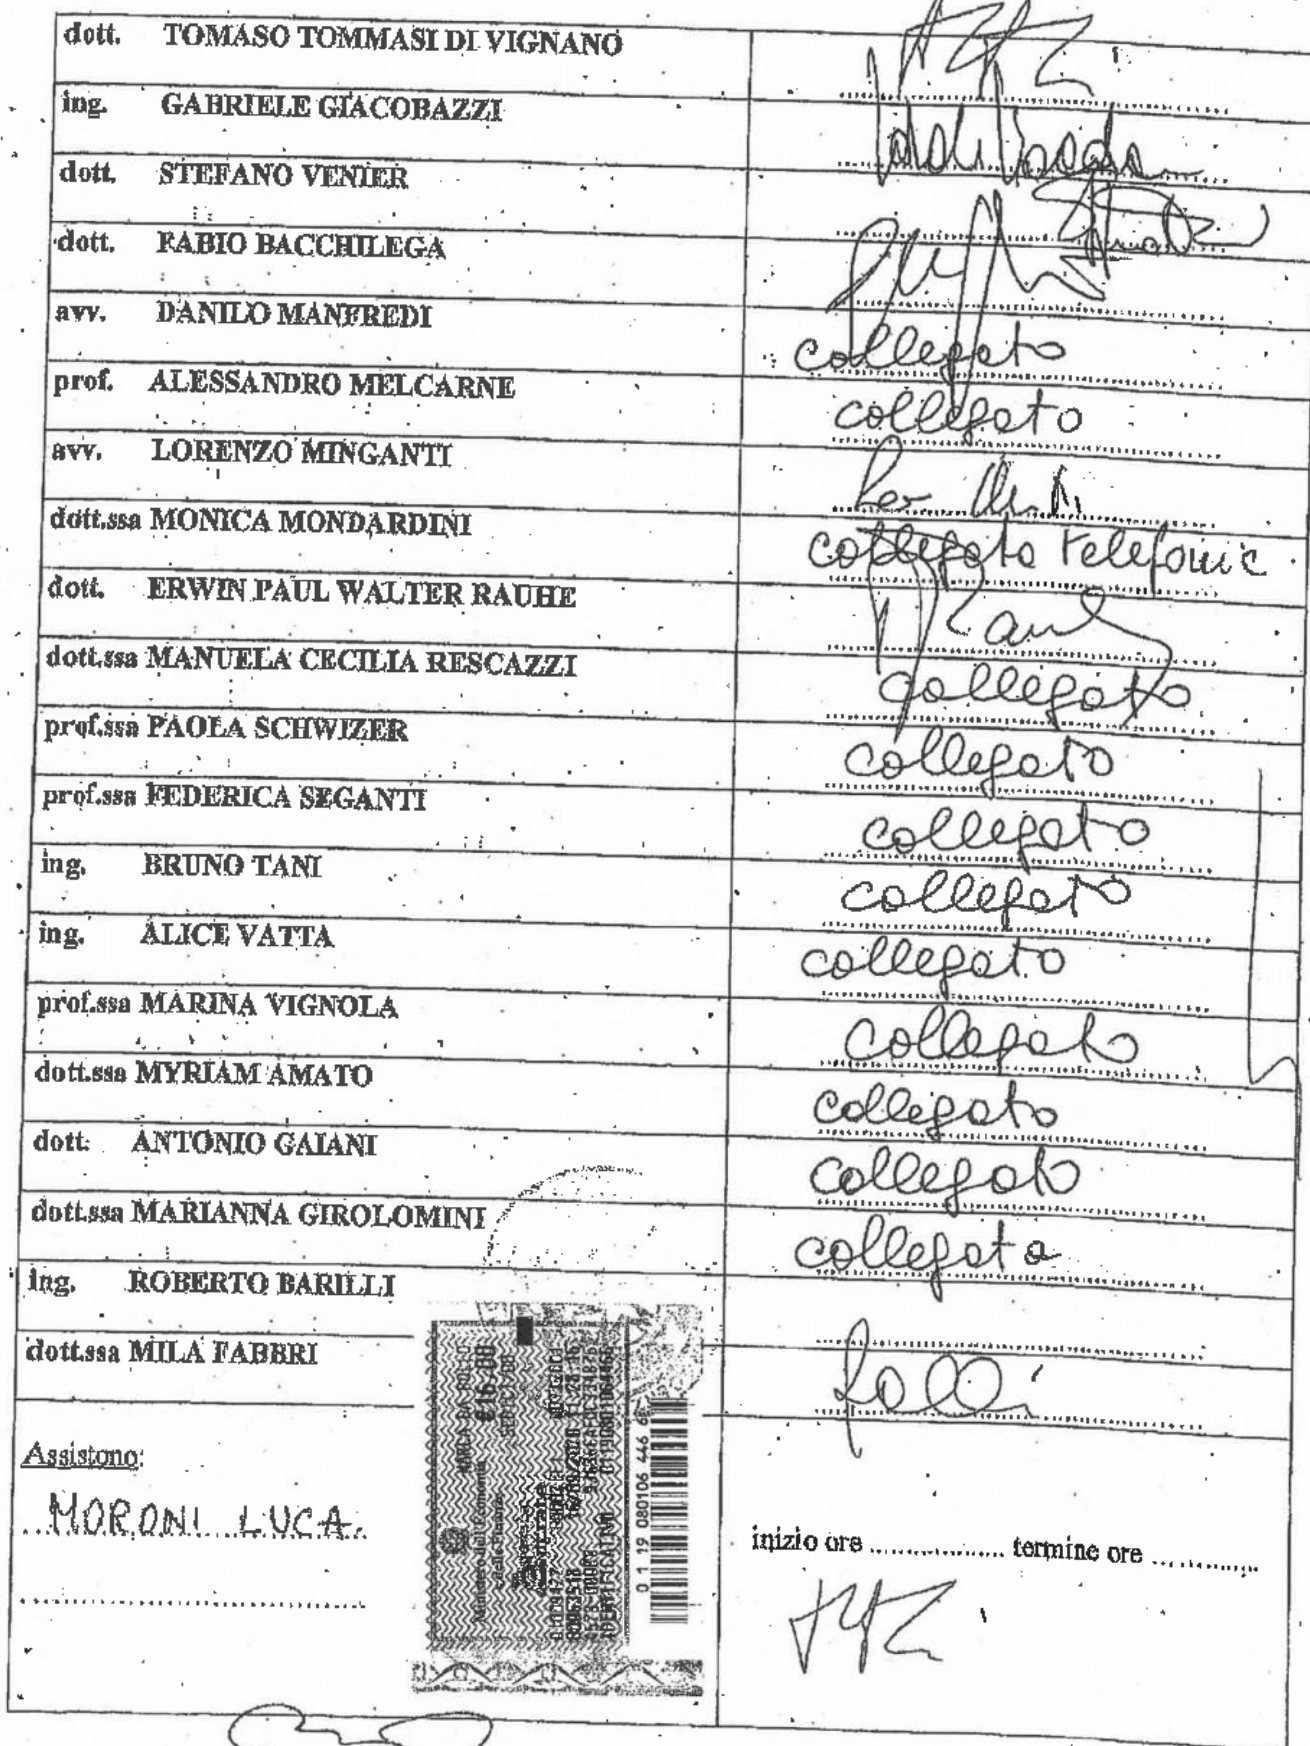 dott. TOMASO TOMMASI DI VIGNANO
ing. GABRIELE GIACOBAZZI
dott. STEFANO VENIER
dott. FABIO BACCHILEGA
avv. DANILO MANFREDI
collegato
prof. ALESSANDRO MELCARNE
collegato
avv. LORENZO MINGANTI
dott.ssa MONICA MONDARDINI
collegata telefonic
dott. ERWIN PAUL WALTER RAUHE
dott.ssa MANUELA CECILIA RESCAZZI
collegato
prof.ssa PAOLA SCHWIZER
collegato
prof.ssa FEDERICA SEGANTI
collegato
ing. BRUNO TANI
collegato
ing. ALICE VATTA
collegato
prof.ssa MARINA VIGNOLA
collegato
dott.ssa MYRIAM AMATO
collegato
dott. ANTONIO GAIANI
collegato
dott.ssa MARIANNA GIROLOMINI
collegata
ing. ROBERTO BARILLI
dott.ssa MILA FABBRI
Assistono:
MORONI LUCA
inizio ore ................ termine ore ............
MARCA DA BOLLO
Ministero dell'Economia
e delle Finanze
€16,00
IDENTIFICATIVO
0 1 19 080106 446 6